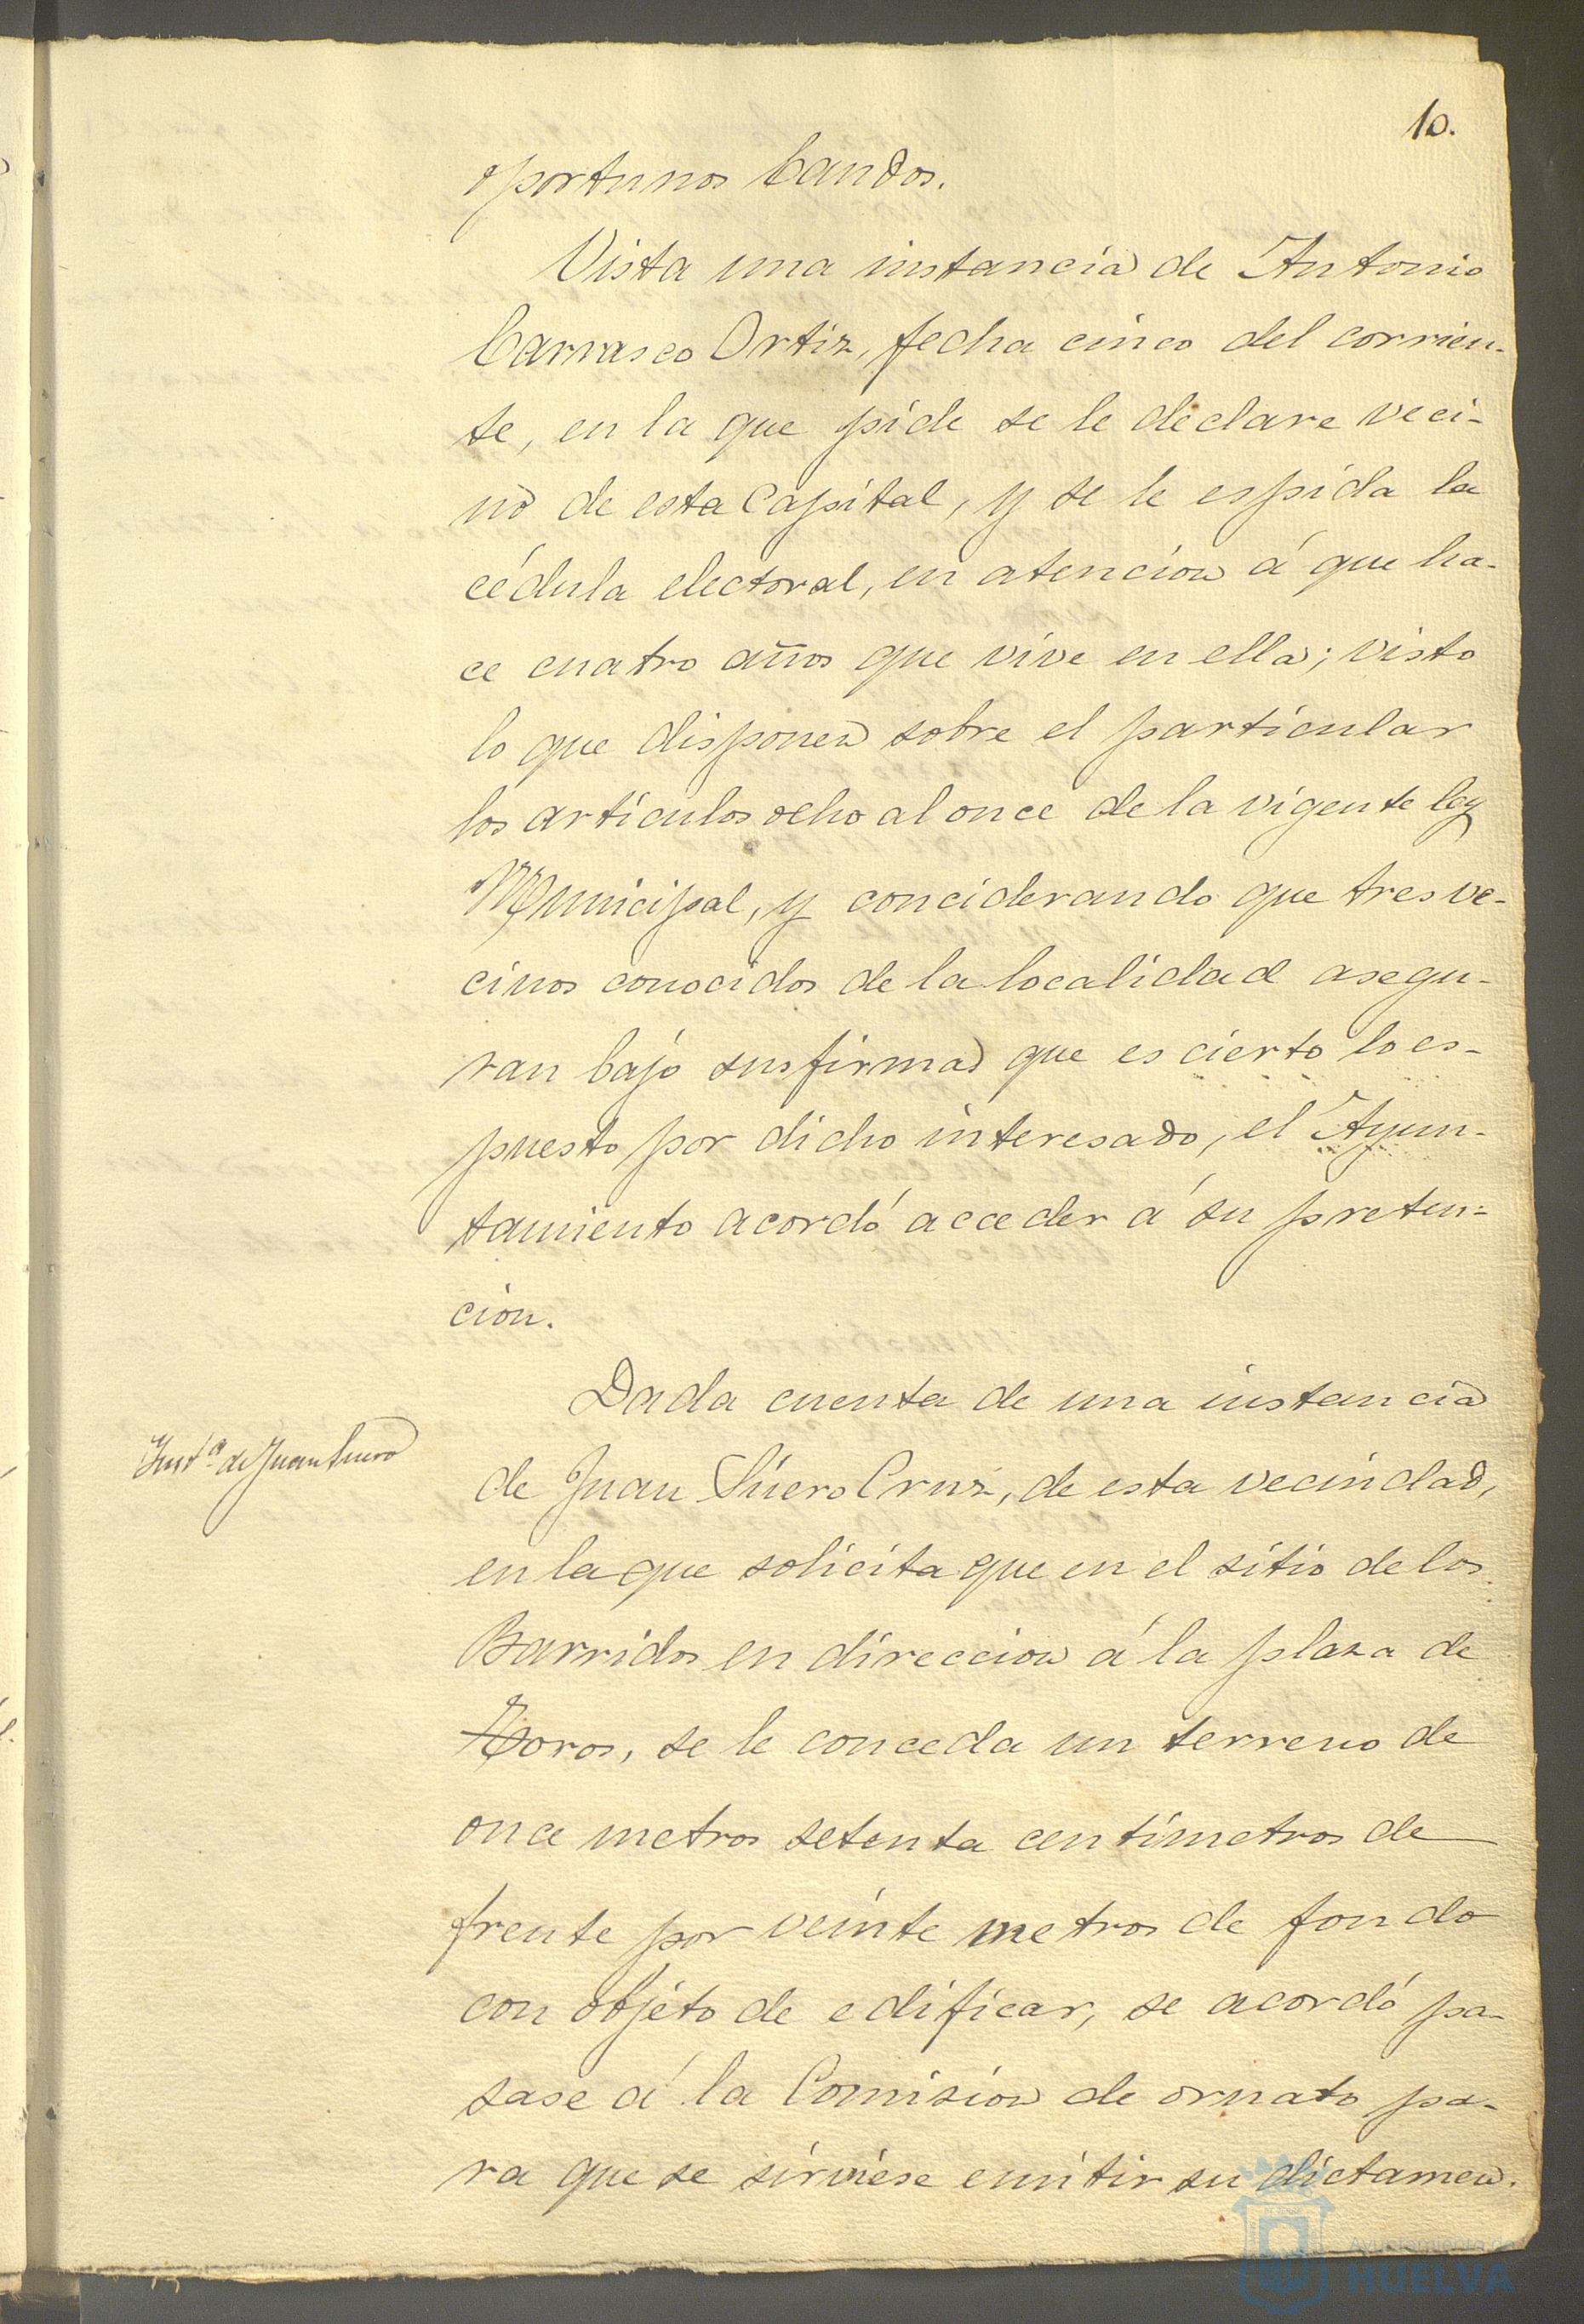 10.
oportunos bandos.
Vista una instancia de Antonio
Carrasco Ortiz, fecha cinco del corrien-
te, en la que pide se le declare veci-
no de esta Capital, y se le espida la
cédula electoral, en atencion á que ha-
ce cuatro años que vive en ella; visto
lo que disponen sobre el particular
los artículos ocho al once de la vigente ley
Municipal, y conciderando que tres ve-
cinos conocidos de la localidad asegu-
ran bajo sus firmas que es cierto lo es-
puesto por dicho interesado, el Ayun-
tamiento acordó acceder á su preten-
cion.
Inst.ª de Juan Suero
Dada cuenta de una instancia
de Juan Suero Cruz, de esta vecindad,
en la que solicita que en el sitio de los
Barridos en direccion á la plaza de
Toros, se le conceda un terreno de
once metros setenta centímetros de
frente por veinte metros de fondo
con objeto de edificar, se acordó pa-
sase á la Comision de ornato pa-
ra que se sirviese emitir su dictamen.
Ayuntamiento de
HUELVA